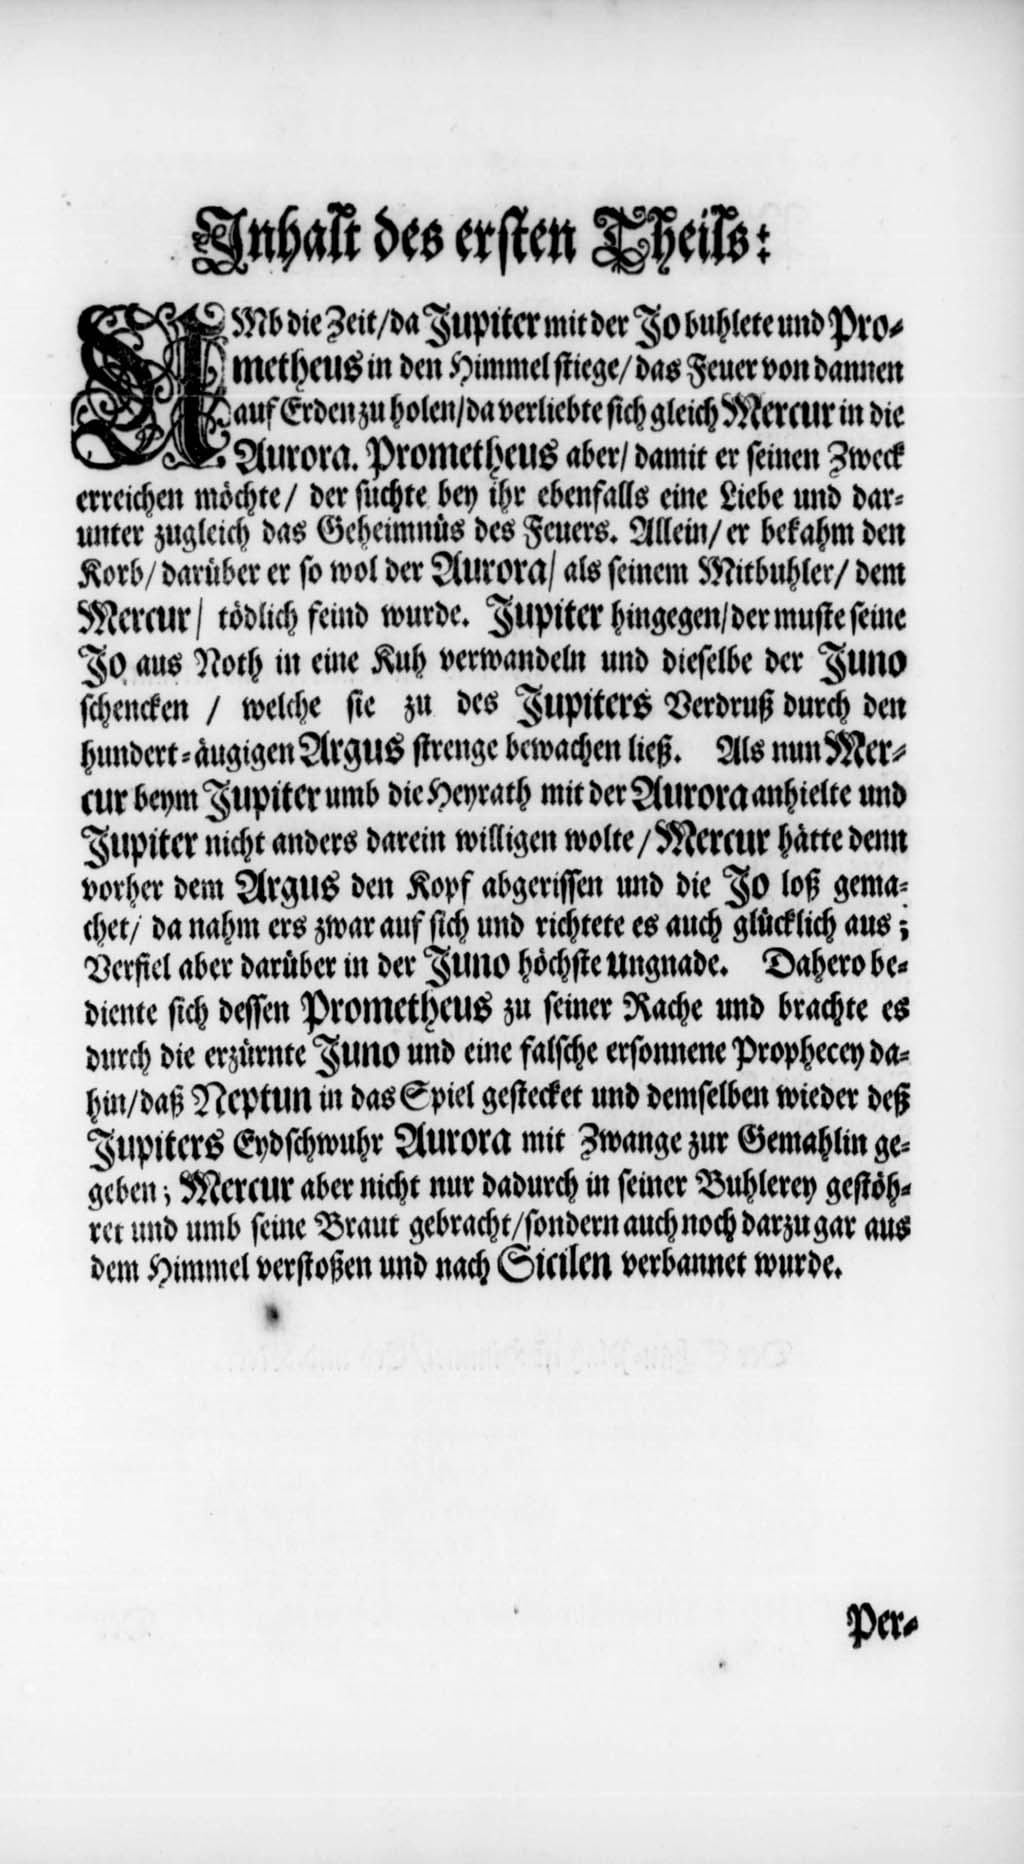 Inhalt des ersten Theils:
UMb die Zeit/da Jupiter mit der Jo buhlete und Pro-
metheus in den Himmel stiege/ das Feuer von dannen
auf Erden zu holen/da verliebte sich gleich Mercur in die
Aurora. Prometheus aber/ damit er seinen Zweck
erreichen möchte/ der suchte bey ihr ebenfalls eine Liebe und dar-
unter zugleich das Geheimnüs des Feuers. Allein/ er bekahm den
Korb/ darüber er so wol der Aurora/ als seinem Mitbuhler/ dem
Mercur/ tödlich feind wurde. Jupiter hingegen/der muste seine
Jo aus Noth in eine Kuh verwandeln und dieselbe der Juno
schencken / welche sie zu des Jupiters Verdruß durch den
hundert-äugigen Argus strenge bewachen ließ. Als nun Mer-
cur beym Jupiter umb die Heyrath mit der Aurora anhielte und
Jupiter nicht anders darein willigen wolte/ Mercur hätte denn
vorher dem Argus den Kopf abgerissen und die Jo loß gema-
chet/ da nahm ers zwar auf sich und richtete es auch glücklich aus;
Verfiel aber darüber in der Juno höchste Ungnade. Dahero be-
diente sich dessen Prometheus zu seiner Rache und brachte es
durch die erzürnte Juno und eine falsche ersonnene Prophecey da-
hin/daß Neptun in das Spiel gestecket und demselben wieder deß
Jupiters Eydschwuhr Aurora mit Zwange zur Gemahlin ge-
geben; Mercur aber nicht nur dadurch in seiner Buhlerey gestöh-
ret und umb seine Braut gebracht/sondern auch noch darzu gar aus
dem Himmel verstoßen und nach Sicilen verbannet wurde.
Per-